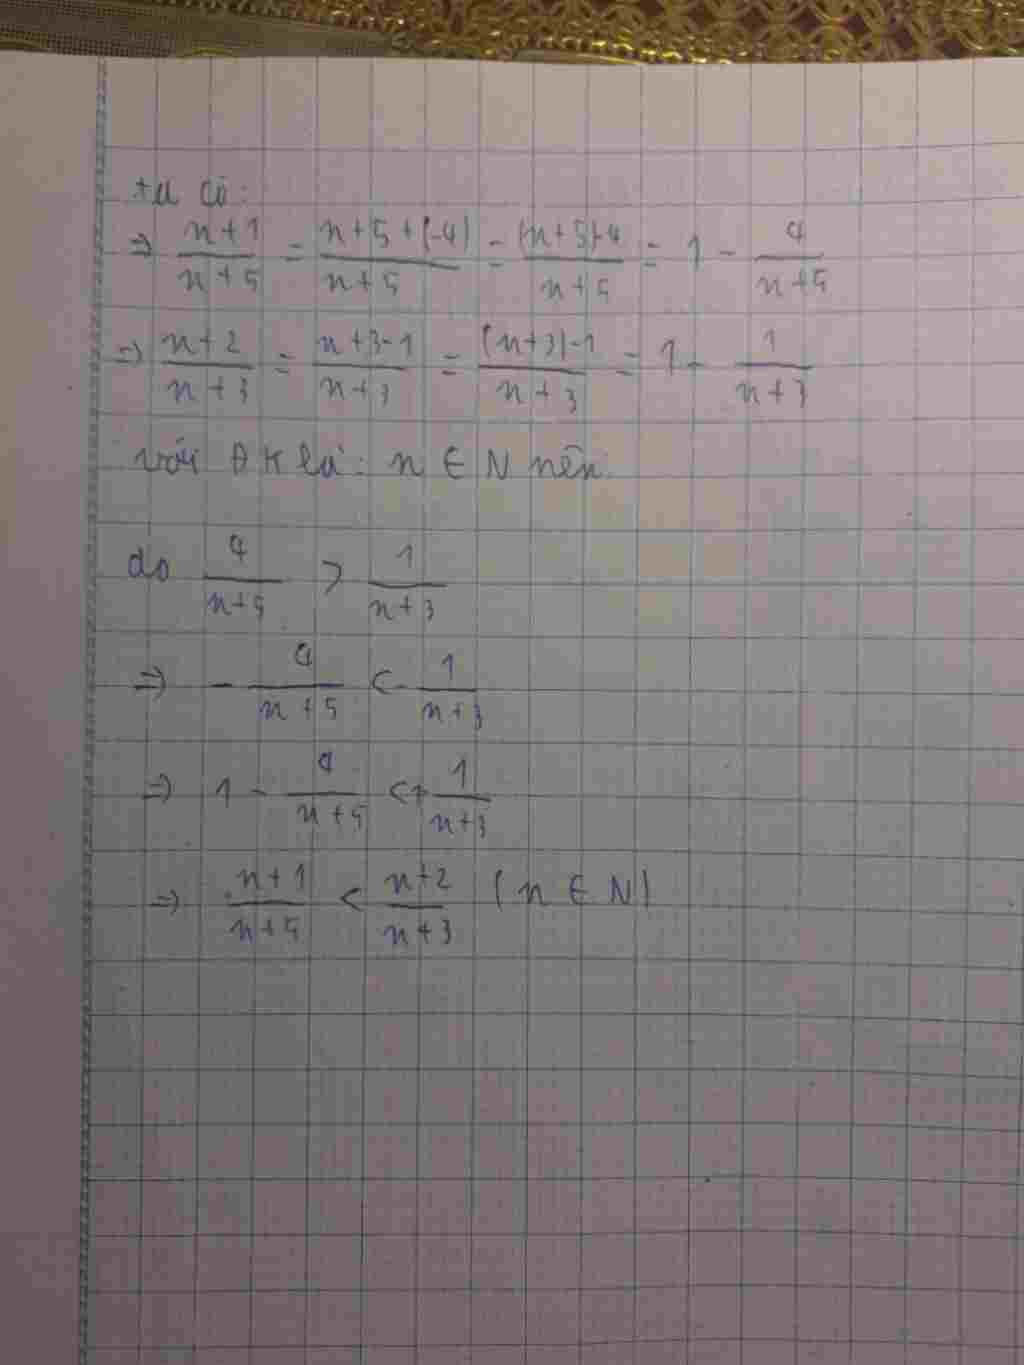 ta có:
⇒ n+1/n+5 = n+5+(-4)/n+5 = (n+5)-4/n+5 = 1 - 4/n+5
⇒ n+2/n+3 = n+3-1/n+3 = (n+3)-1/n+3 = 1 - 1/n+3
với ĐK là: n ∈ N nên:
do 4/n+5 > 1/n+3
⇒ - 4/n+5 < - 1/n+3
⇒ 1 - 4/n+5 < 1- 1/n+3
⇒ n+1/n+5 < n+2/n+3 (n ∈ N)